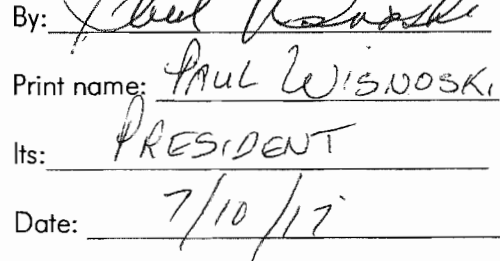 By: Paul Wisnoski
Print name: PAUL WISNOSKI
Its: PRESIDENT
Date: 7/10/17